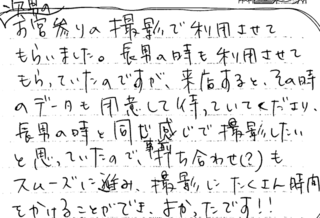 次男の
お宮参りの撮影で利用させて
もらいました。長男の時も利用させて
もらっていたのですが、来店すると、その時
のデータも用意して待っていてくださり、
長男の時と同じ感じで撮影したい
と思っていたので、事前打ち合わせ(?)も
スムーズに進み、撮影にたくさん時間
をかけることができ、よかったです!!